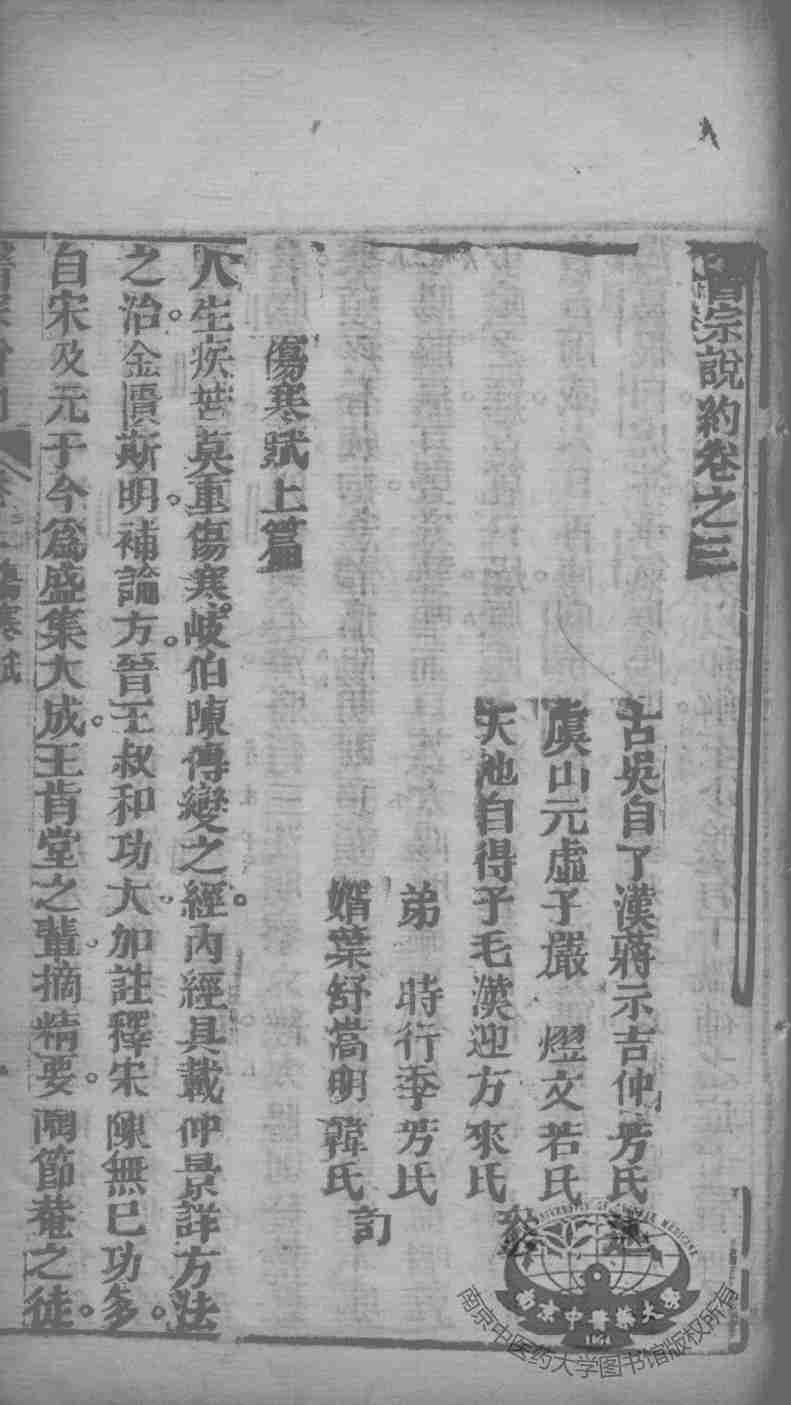 醫宗說約卷之三
古吳自了漢蔣示吉仲芳氏
虞山元虛子嚴 熤文若氏
天池自得子毛漢迎方來氏
弟 時行季芳氏
婿葉舒嵩明韓氏
訂
傷寒賦上篇
人生疾苦莫重傷寒。岐伯陳傳變之經。內經具載仲景詳方法
之治。金匱斯明。補論方。晉王叔和功大。加註釋宋陳無已功多。
自宋及元于今為盛集大成。王肯堂之輩。摘精要。陶節菴之徒。
傷寒賦
南京中醫藥大學
1954
南京中医药大学图书馆版权所有